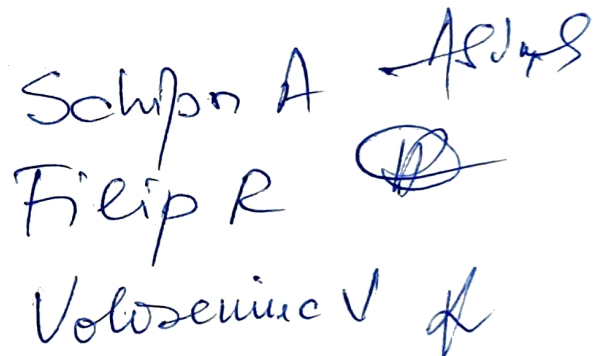 Schipor A
Filip R
Voloseniuc V